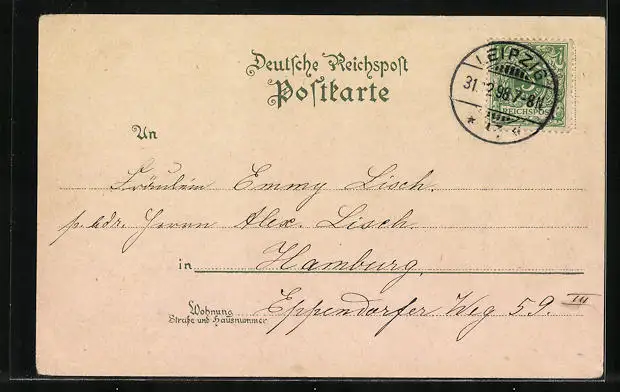 Deutsche Reichspost
Postkarte
LEIPZIG
31.12.98.7-8N.
* 13 *
REICHSPOST
An
Fräulein Emmy Lisch.
p. Adr. Herrn Alex. Lisch.
in Hamburg,
Wohnung
Straße und Hausnummer
Eppendorfer Weg 59. III